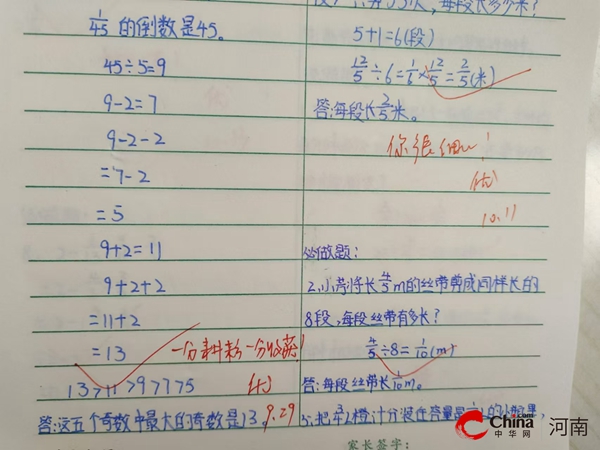 1/45 的倒数是45。
45÷5=9
9-2=7
9-2-2
=7-2
=5
9+2=11
9+2+2
=11+2
=13
一分耕耘一分收获!
13>11>9>7>5
优
答:这五个奇数中最大的奇数是13。
9.29
每段长多少米?
5+1=6(段)
12/5÷6=1/6×12/5=2/5(米)
答:每段长2/5米。
你很细心!
优
10.11
必做题:
2.小芳将长4/5m的丝带剪成同样长的
8段,每段丝带有多长?
4/5÷8=1/10(m)
答:每段丝带长1/10m。
家长签字:
China.com
中华网
河南